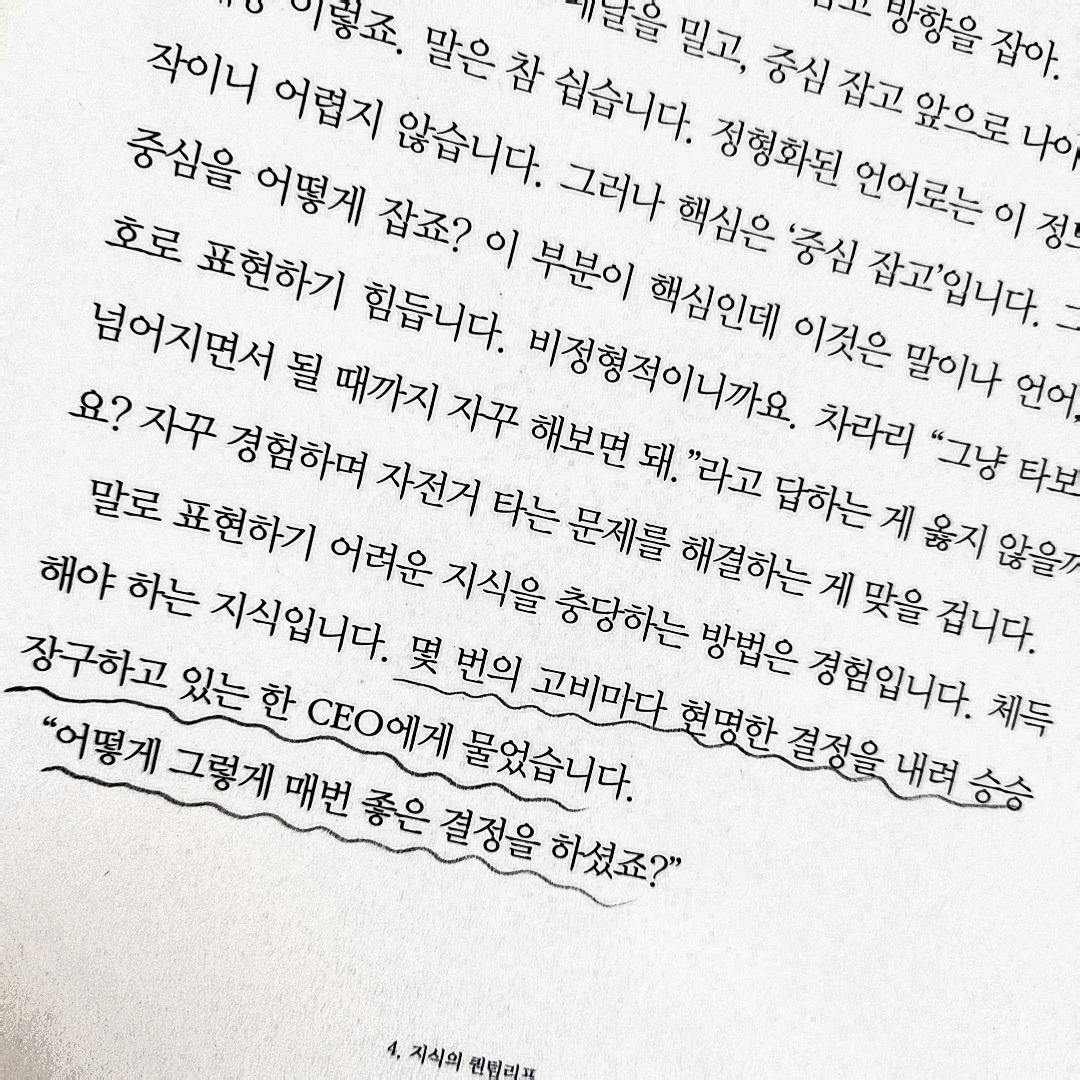 방향을 잡아.
페달을 밀고, 중심 잡고 앞으로
이렇죠. 말은 참 쉽습니다. 정형화된 언어로는 이
작이니 어렵지 않습니다. 그러나 핵심은 ‘중심 잡고’입니다.
중심을 어떻게 잡죠? 이 부분이 핵심인데 이것은 말이나 언어,
호로 표현하기 힘듭니다. 비정형적이니까요. 차라리 “그냥 타보
넘어지면서 될 때까지 자꾸 해보면 돼.”라고 답하는 게 옳지 않을까
요? 자꾸 경험하며 자전거 타는 문제를 해결하는 게 맞을 겁니다.
말로 표현하기 어려운 지식을 충당하는 방법은 경험입니다. 체득
해야 하는 지식입니다. 몇 번의 고비마다 현명한 결정을 내려 승승
장구하고 있는 한 CEO에게 물었습니다.
“어떻게 그렇게 매번 좋은 결정을 하셨죠?”
4. 지식의 퀀텀리프